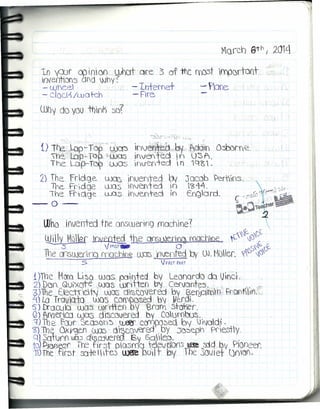 March 6th, 2014
In your opinion what are 3 of the most important
inventions and why?
- wheel - Internet - Plane
- clock/watch - Fire -
Why do you think so?
1) The Lap-Top was invented by Adam Osborne.
The Lap-Top was invented in USA.
The Lap-Top was invented in 1981.
2) The Fridge was invented by Jacob Perkins.
The Fridge was invented in 1844.
The Fridge was invented in England.
Who invented the answering machine?
Willy Müller invented the answering machine ACTIVE VOICE
S V past O
The answering machine was invented by W. Müller. PASSIVE VOICE
S V past part
1) The Mona Lisa was painted by Leonardo da Vinci.
2) Don Quixote was written by Cervantes.
3) The Electricity was discovered by Benjamin Franklin.
4) La Traviata was composed by Verdi.
5) Dracula was written by Bram Stoker.
6) America was discovered by Columbus.
7) The Four Seasons were composed by Vivaldi.
8) The Oxigen was discovered by Joseph Priestly.
9) Saturn was discovered by Galileo.
10) Pioneer The first plasma televisions were sold by Pioneer.
11) The first satellites were built by The Soviet Union.